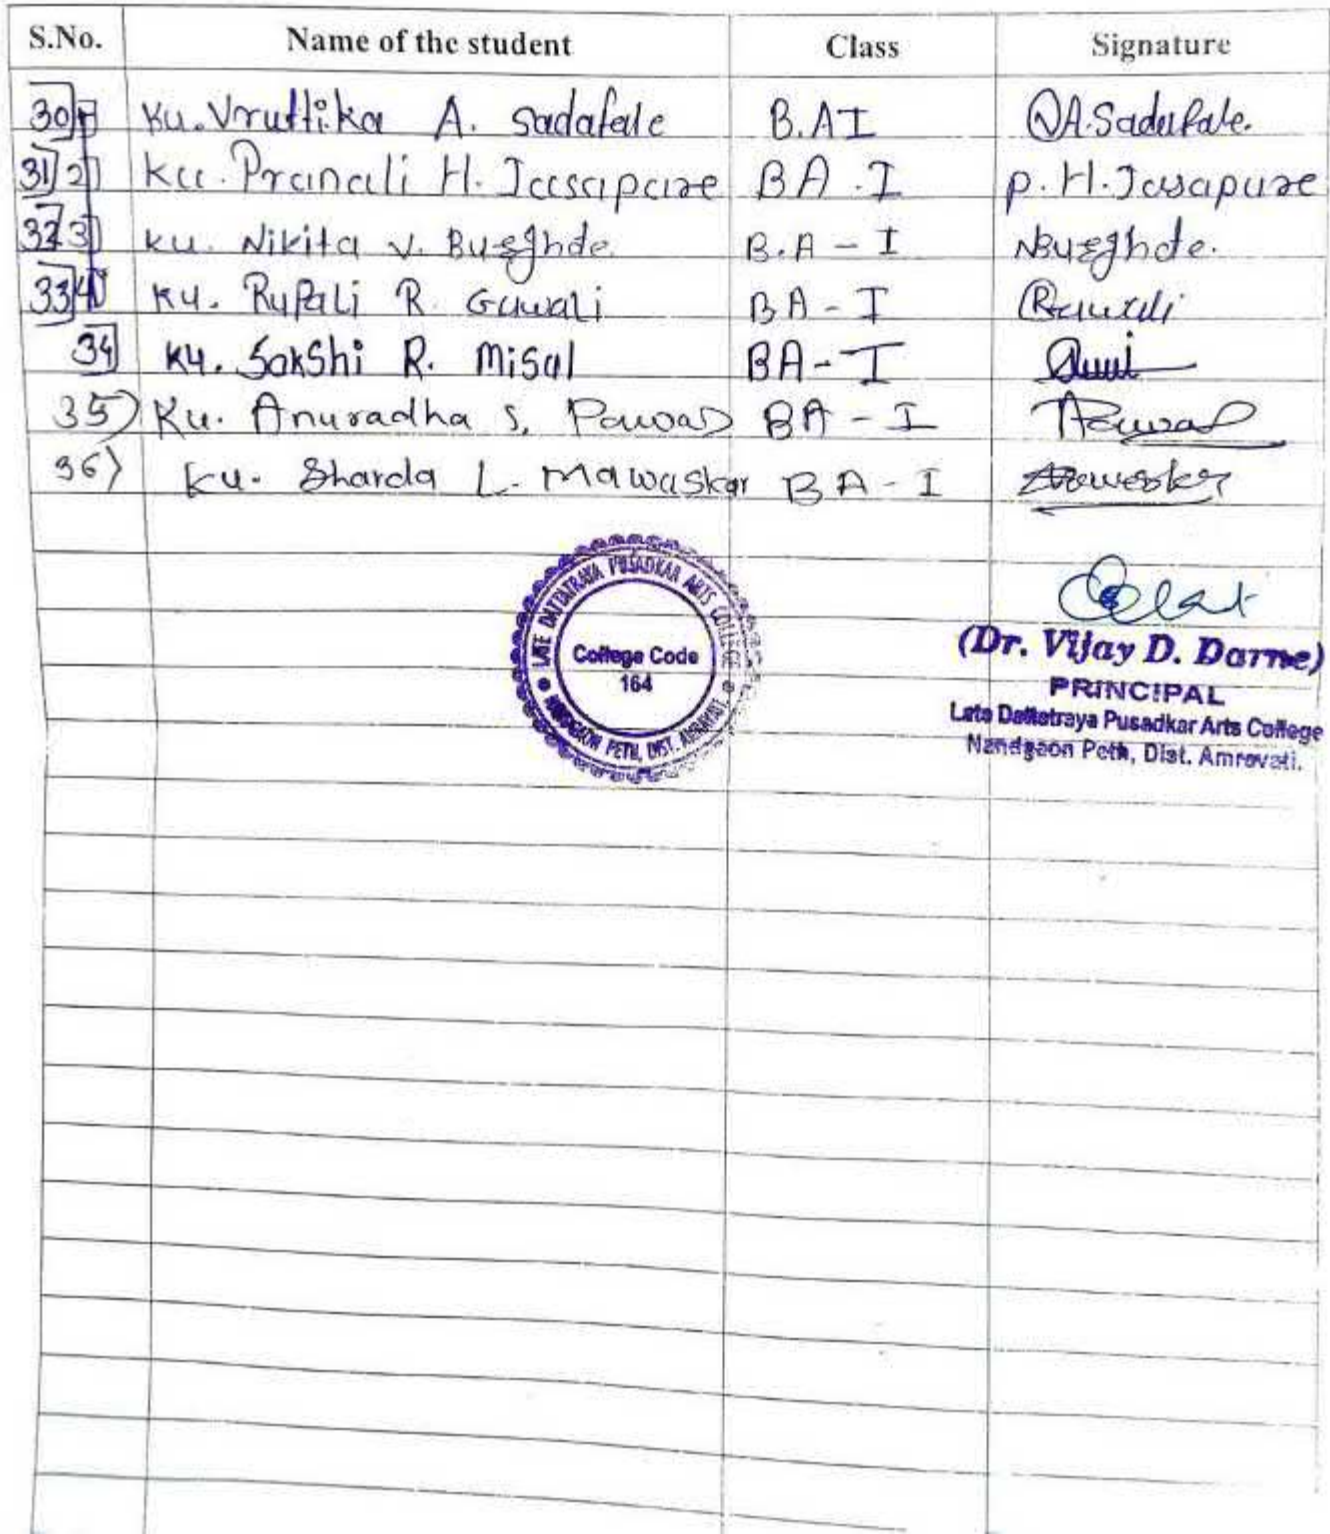 S.No. Name of the student Class Signature
30) Ku. Vruttika A. Sadafale B.AI A. Sadafale.
31) 2) Ku. Pranali H. Jasapure BA.I P. H. Jasapure
32) 3) Ku. Nikita V. Burghde. B.A-I NBurghde.
33) 4) Ku. Rupali R. Gawali BA-I
34) Ku. Sakshi R. Misal BA-I
35) Ku. Anuradha S. Pawar BA-I APawar
36) Ku. Sharda L. Mawaskar BA-I
LATE DATTATRAYA PUSADKAR ARTS COLLEGE
College Code
164
NANDGAON PETH, DIST. AMRAVATI
(Dr. Vijay D. Darne)
PRINCIPAL
Late Dattatraya Pusadkar Arts College
Nandgaon Peth, Dist. Amravati.